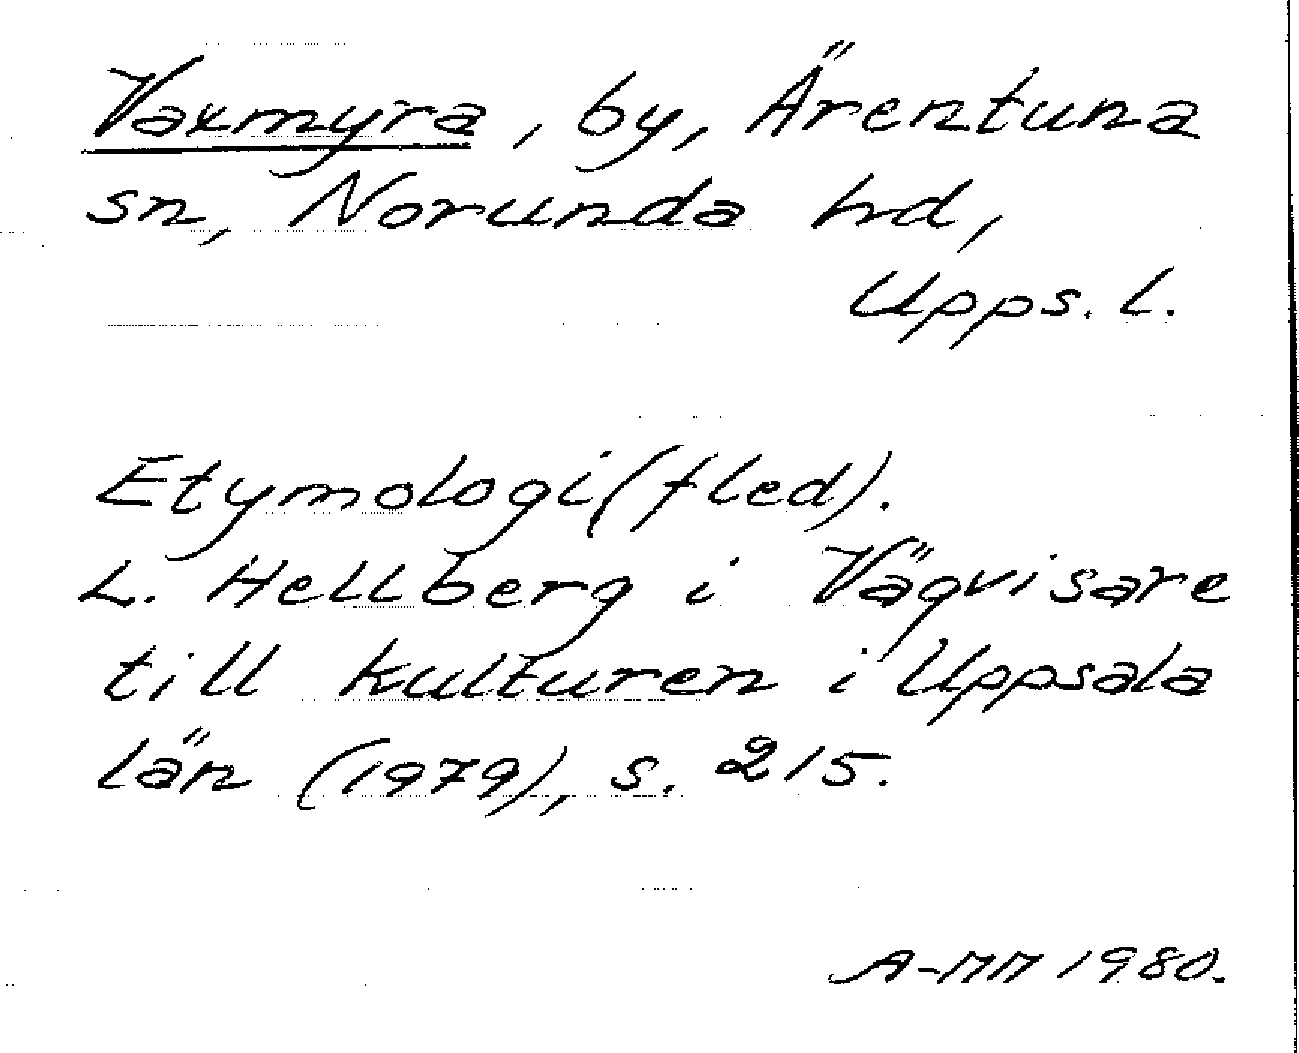 Vaxmyra, by, Ärentuna
sn, Norunda hd,
Upps. l.
Etymologi (f led).
L. Hellberg i Vägvisare
till kulturen i Uppsala
län (1979), s. 215.
A-MM 1980.